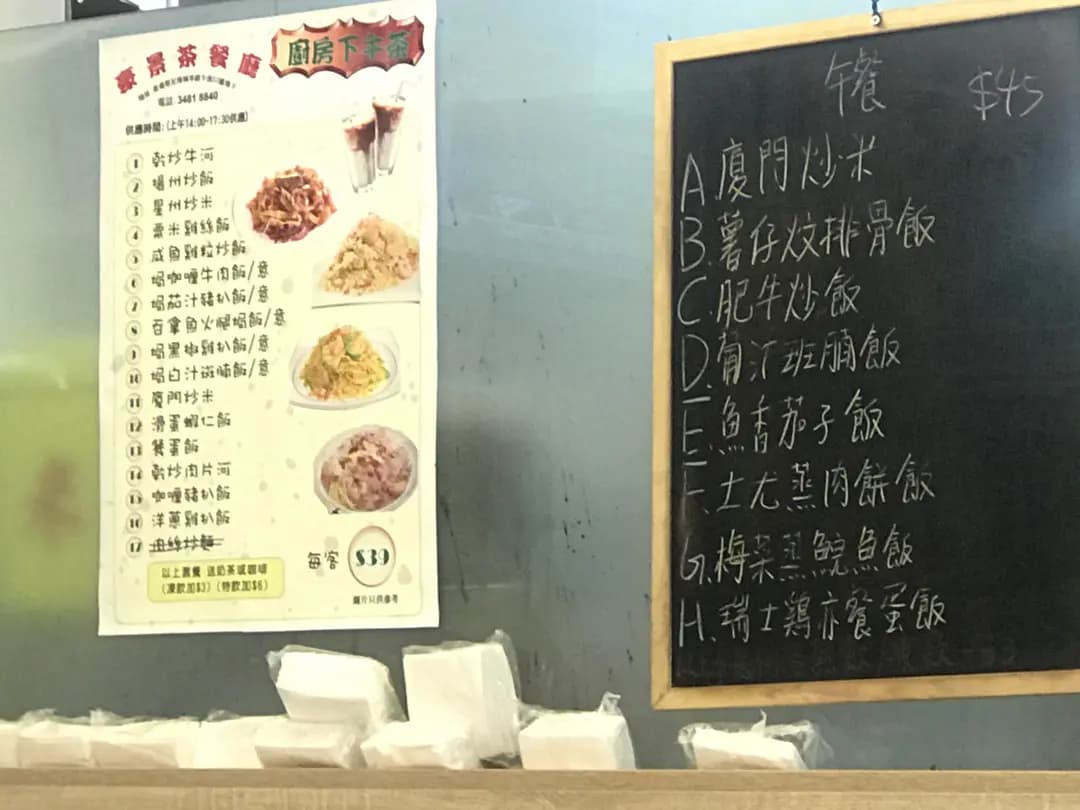 豪景茶餐廳
廚房下午茶
電話: 3481 8840
供應時間:(上午14:00-17:30供應)
1 乾炒牛河
2 揚州炒飯
3 星州炒米
4 粟米雞絲飯
5 咸魚雞粒炒飯
6 焗咖喱牛肉飯/意
7 焗茄汁豬扒飯/意
8 吞拿魚火腿焗飯/意
9 焗黑椒雞扒飯/意
10 焗白汁斑腩飯/意
11 廈門炒米
12 滑蛋蝦仁飯
13 餐蛋飯
14 乾炒肉片河
15 咖喱豬扒飯
16 洋蔥雞扒飯
17 肉絲炒麵
每客 $39
以上套餐 送奶茶或咖啡
(凍飲加$3) (特飲加$6)
圖片只供參考
午餐 $45
A.廈門炒米
B.薯仔炆排骨飯
C.肥牛炒飯
D.葡汁班腩飯
E.魚香茄子飯
F.土尤蒸肉餅飯
G.梅菜蒸鯇魚飯
H.瑞士鷄亦餐蛋飯